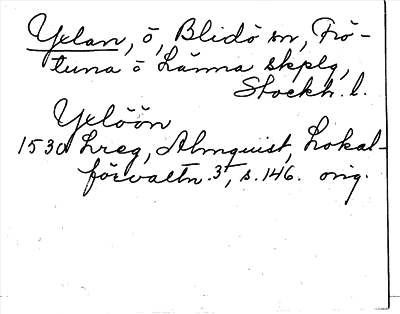 Yxlan, ö, Blidö sn, Frö-
tuna o Länna skplg,
Stockh. l.
Yxlöön
1530 Lreg, Almquist, Lokal-
förvaltn. 3, s. 146. orig.